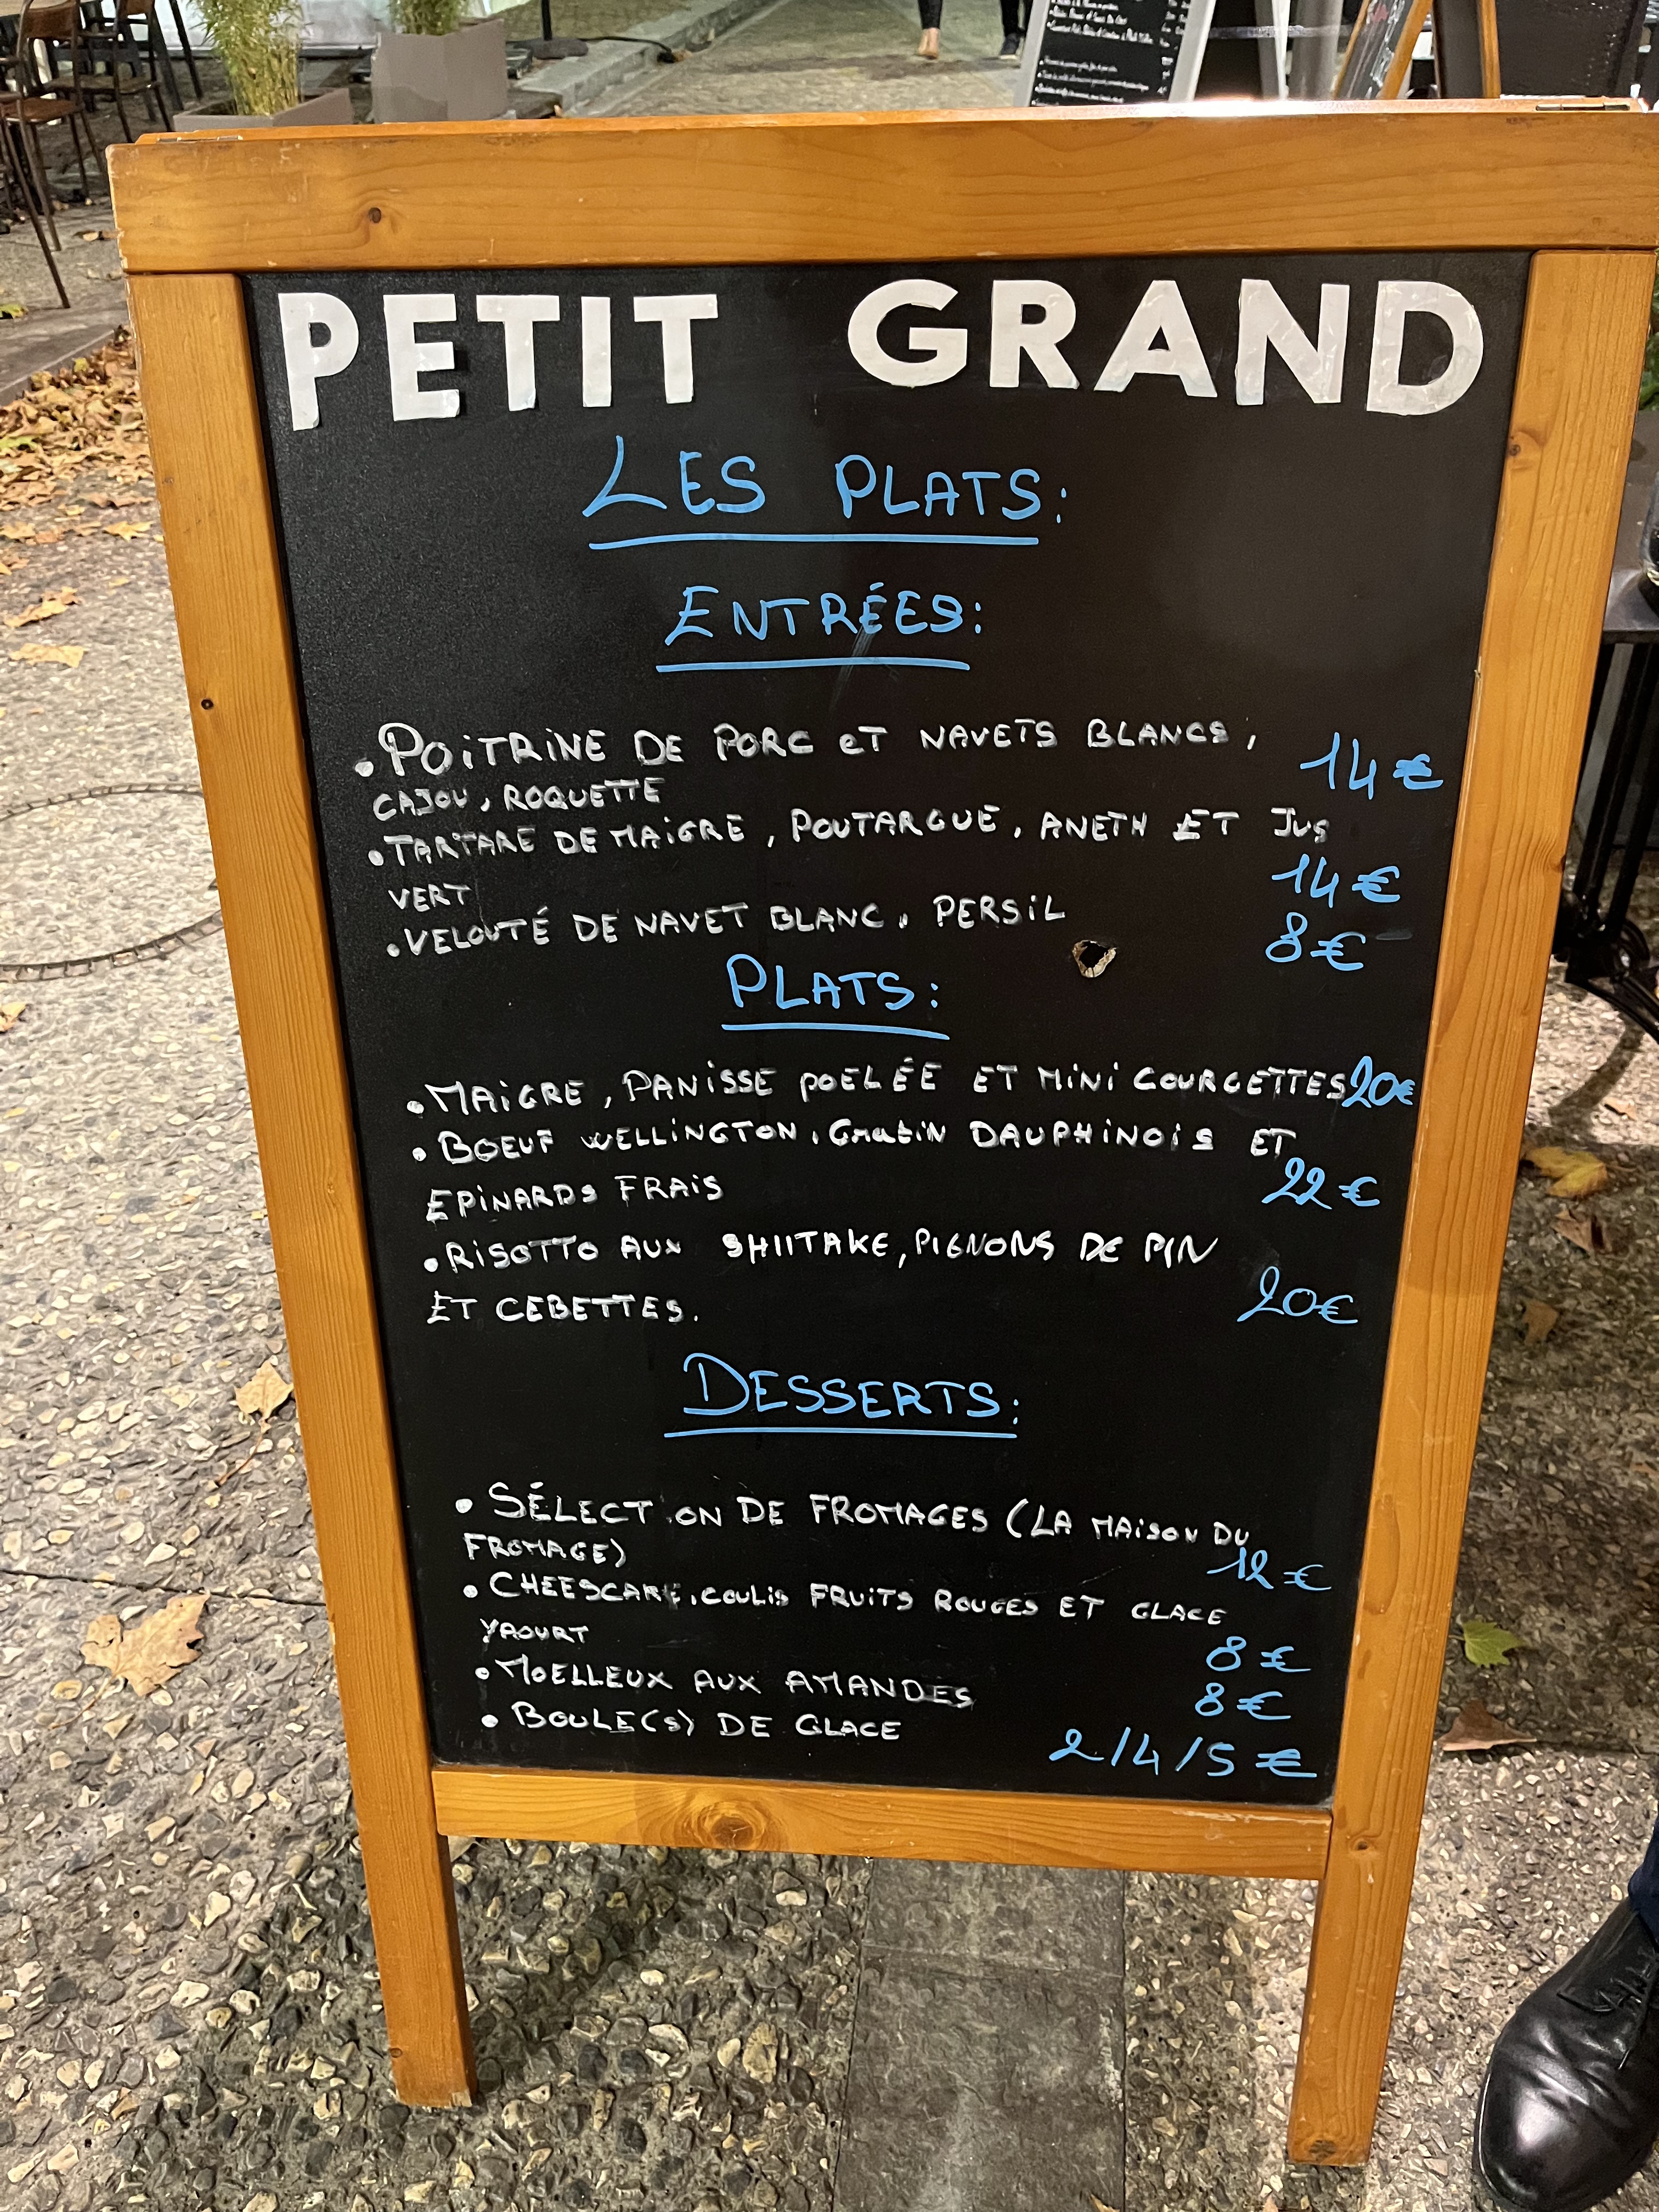 PETIT GRAND
LES PLATS:
ENTRÉES:
• POITRINE DE PORC ET NAVETS BLANCS, 14€
CAJOU, ROQUETTE
• TARTARE DE MAIGRE, POUTARGUE, ANETH ET JUS
VERT 14€
• VELOUTÉ DE NAVET BLANC, PERSIL 8€
PLATS:
• MAIGRE, PANISSE POELÉE ET MINI COURGETTES 20€
• BOEUF WELLINGTON, GRATIN DAUPHINOIS ET
EPINARDS FRAIS 22€
• RISOTTO AUX SHIITAKE, PIGNONS DE PIN
ET CEBETTES. 20€
DESSERTS:
• SÉLECTION DE FROMAGES (LA MAISON DU
FROMAGE) 12€
• CHEESCAKE, COULIS FRUITS ROUGES ET GLACE
YAOURT 8€
• MOELLEUX AUX AMANDES 8€
• BOULE(S) DE GLACE 2/4/5€